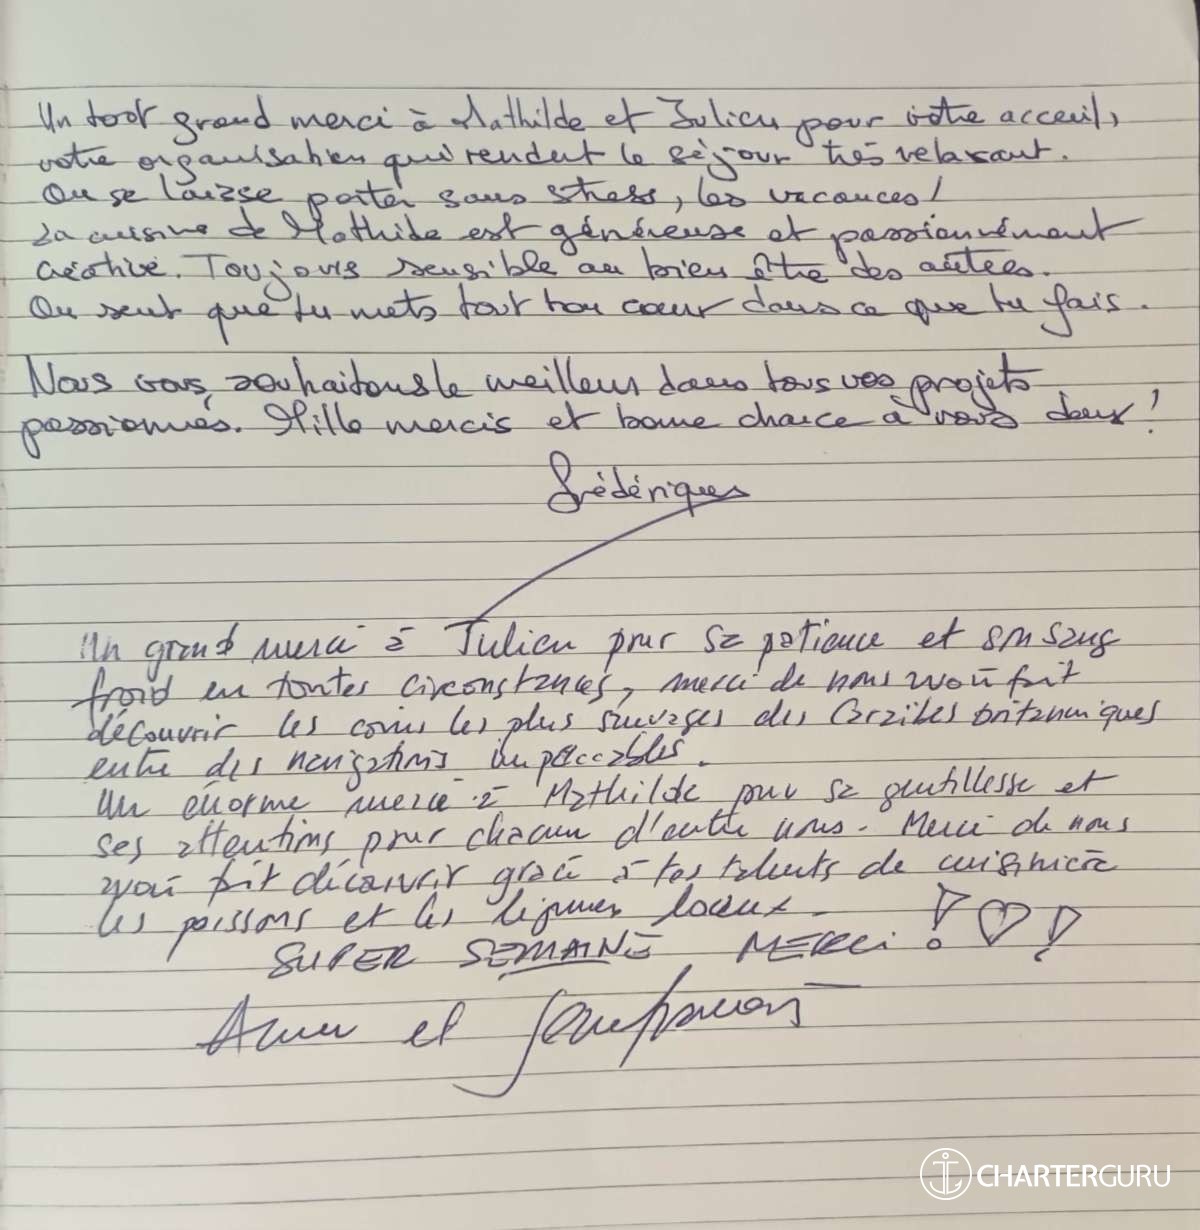 Un tout grand merci à Mathilde et Julien pour votre acceuil,
votre organisation qui rendent le séjour très relaxant.
On se laisse porter sans stress, les vacances!
La cuisine de Mathilde est généreuse et passionnément
créative. Toujours sensible au bien être des autres.
On sent que tu mets tout ton cœur dans ce que tu fais.
Nous vous souhaitons le meilleur dans tous vos projets
passionnés. Mille mercis et bonne chance à vous deux!
Frédérique
Un grand merci à Julien pour sa patience et son sang
froid en toutes circonstances, merci de nous avoir fait
découvrir les coins les plus sauvages des Caraïbes britanniques
entre des navigations impeccables.
Un énorme merci à Mathilde pour sa gentillesse et
ses attentions pour chacun d'entre nous. Merci de nous
avoir fait découvrir grâce à tes talents de cuisinière
les poissons et les légumes locaux.
SUPER SEMAINE MERCI! ♡!
et
CHARTERGURU